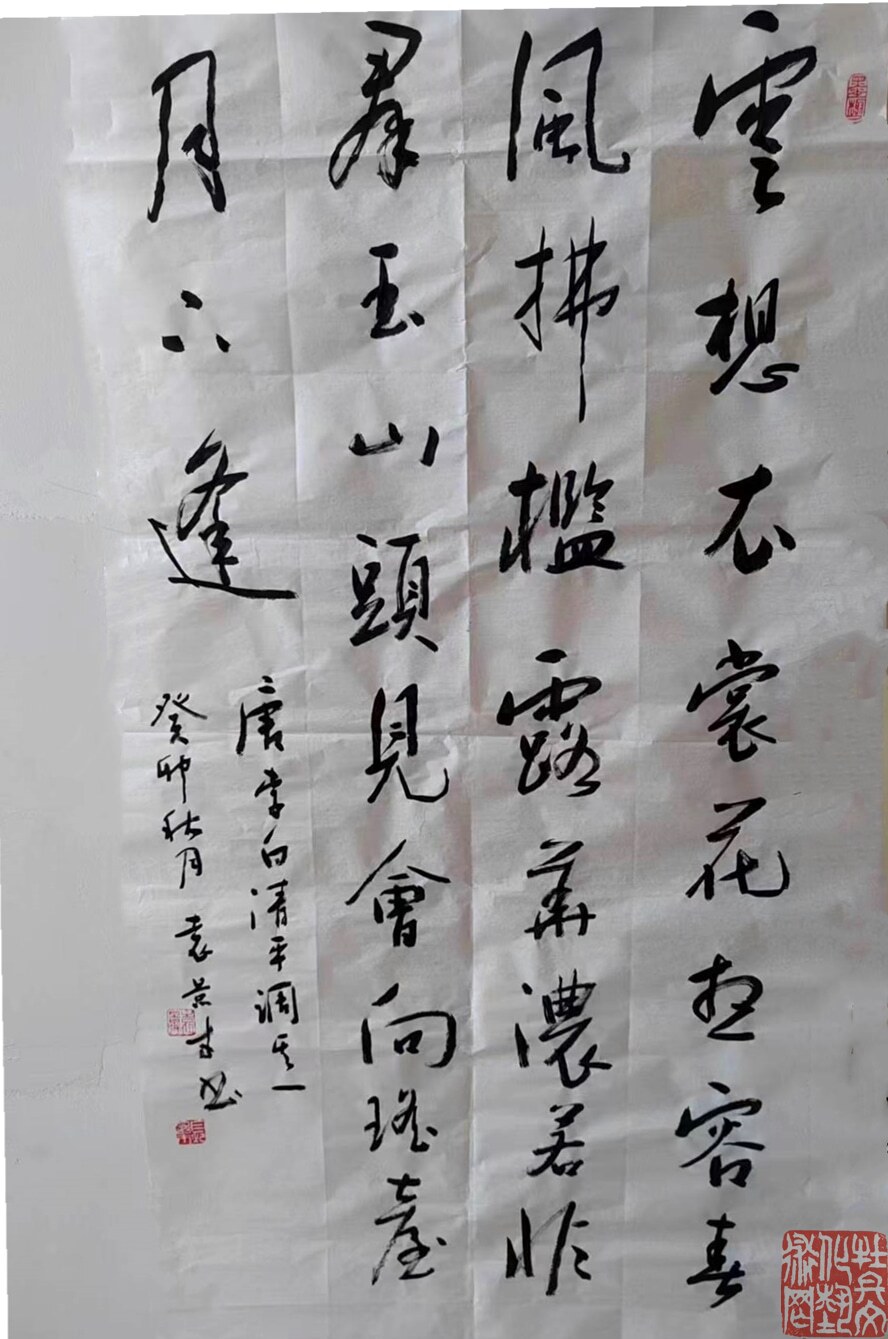 雲想衣裳花想容春
風拂檻露華濃若非
羣玉山頭見會向瑤臺
月下逢
唐李白清平調其一
癸卯秋月 袁
牡丹文化藝術网